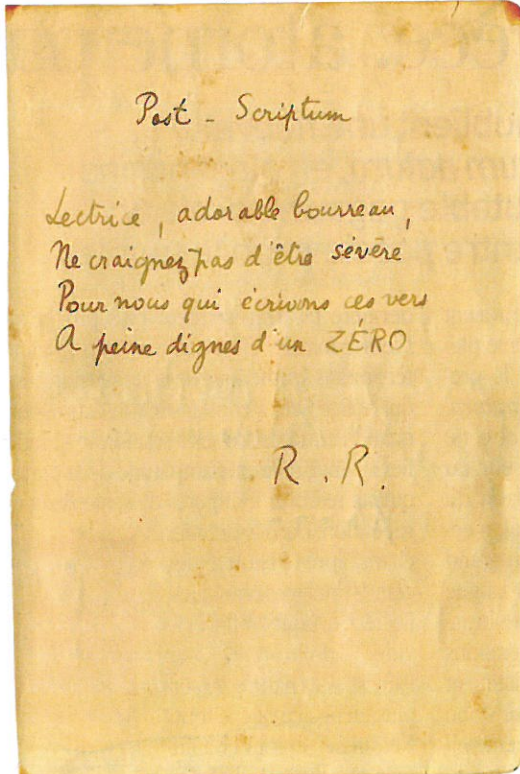 Post - Scriptum
Lectrice, adorable bourreau,
Ne craignez pas d'être sévère
Pour nous qui écrivons ces vers
A peine dignes d'un ZÉRO
R. R.